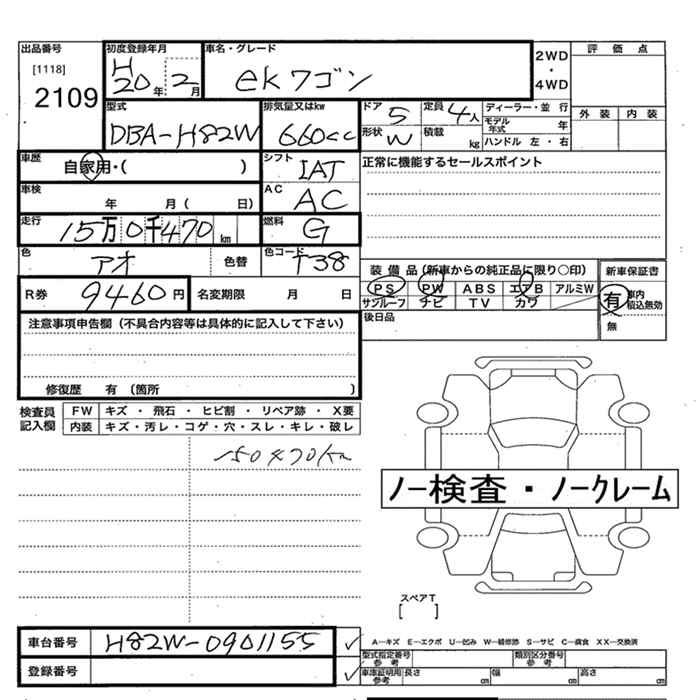 出品番号 [1118] 2109
初度登録年月 H 20年 2月
車名・グレード ekワゴン
2WD ・ 4WD
評価点
外装 内装
型式 DBA-H82W
排気量又はkw 660cc
ドア 5
定員 4人
形状 W
積載 kg
ディーラー・並 行
モデル年式 年
ハンドル 左・右
車歴 自家用・( )
シフト IAT
正常に機能するセールスポイント
車検 年 月 ( 日)
AC AC
走行 15万0千470 km
燃料 G
色 アオ 色替
色コード T38
装備品 (新車からの純正品に限り○印)
PS PW ABS エアB アルミW
サンルーフ ナビ TV カワ
新車保証書
有 車内積込無効
無
R券 9460円
名変期限 月 日
後日品
注意事項申告欄 (不具合内容等は具体的に記入して下さい)
修復歴 有 (箇所 )
検査員記入欄
FW キズ ・ 飛石 ・ ヒビ割 ・ リペア跡 ・ X要
内装 キズ・汚レ・コゲ・穴・スレ・キレ・破レ
150470km
ノー検査・ノークレーム
スペアT
[ ]
車台番号 H82W-0901155
登録番号
A−キズ E−エクボ U−凹み W−補修跡 S−サビ C−腐食 XX−交換済
型式指定番号 参考
類別区分番号 参考
車庫証明用 参考 長さ cm 幅 cm 高さ cm